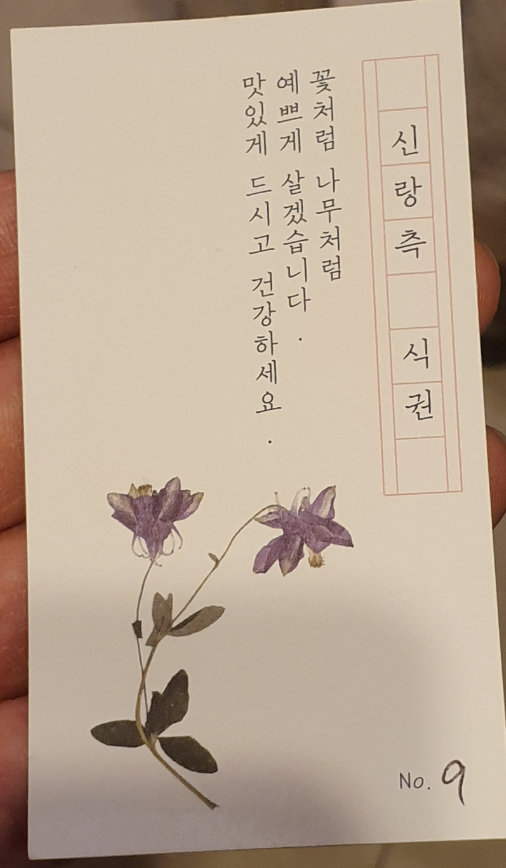 신랑측 식권
꽃처럼 나무처럼
예쁘게 살겠습니다.
맛있게 드시고 건강하세요.
No. 9